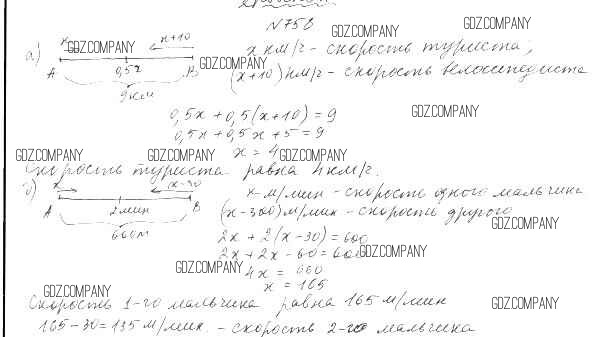 N 758
а) x x+10 x км/г - скорость туриста,
A 0,5x B (x+10) км/г - скорость велосипедиста
9 км
0,5x + 0,5(x+10) = 9
0,5x + 0,5x + 5 = 9
x = 4
Скорость туриста равна 4 км/г.
б) x (x-30) x м/мин - скорость одного мальчика
A 2 мин B (x-300) м/мин - скорость другого
660 м
2x + 2(x-30) = 600
2x + 2x - 60 = 60
4x = 660
x = 165
Скорость 1-го мальчика равна 165 м/мин
165-30=135 м/мин - скорость 2-го мальчика
GDZ.COMPANY
GDZ.COMPANY
GDZ.COMPANY
GDZ.COMPANY
GDZ.COMPANY
GDZ.COMPANY
GDZ.COMPANY
GDZ.COMPANY
GDZ.COMPANY
GDZ.COMPANY
GDZ.COMPANY
GDZ.COMPANY
GDZ.COMPANY